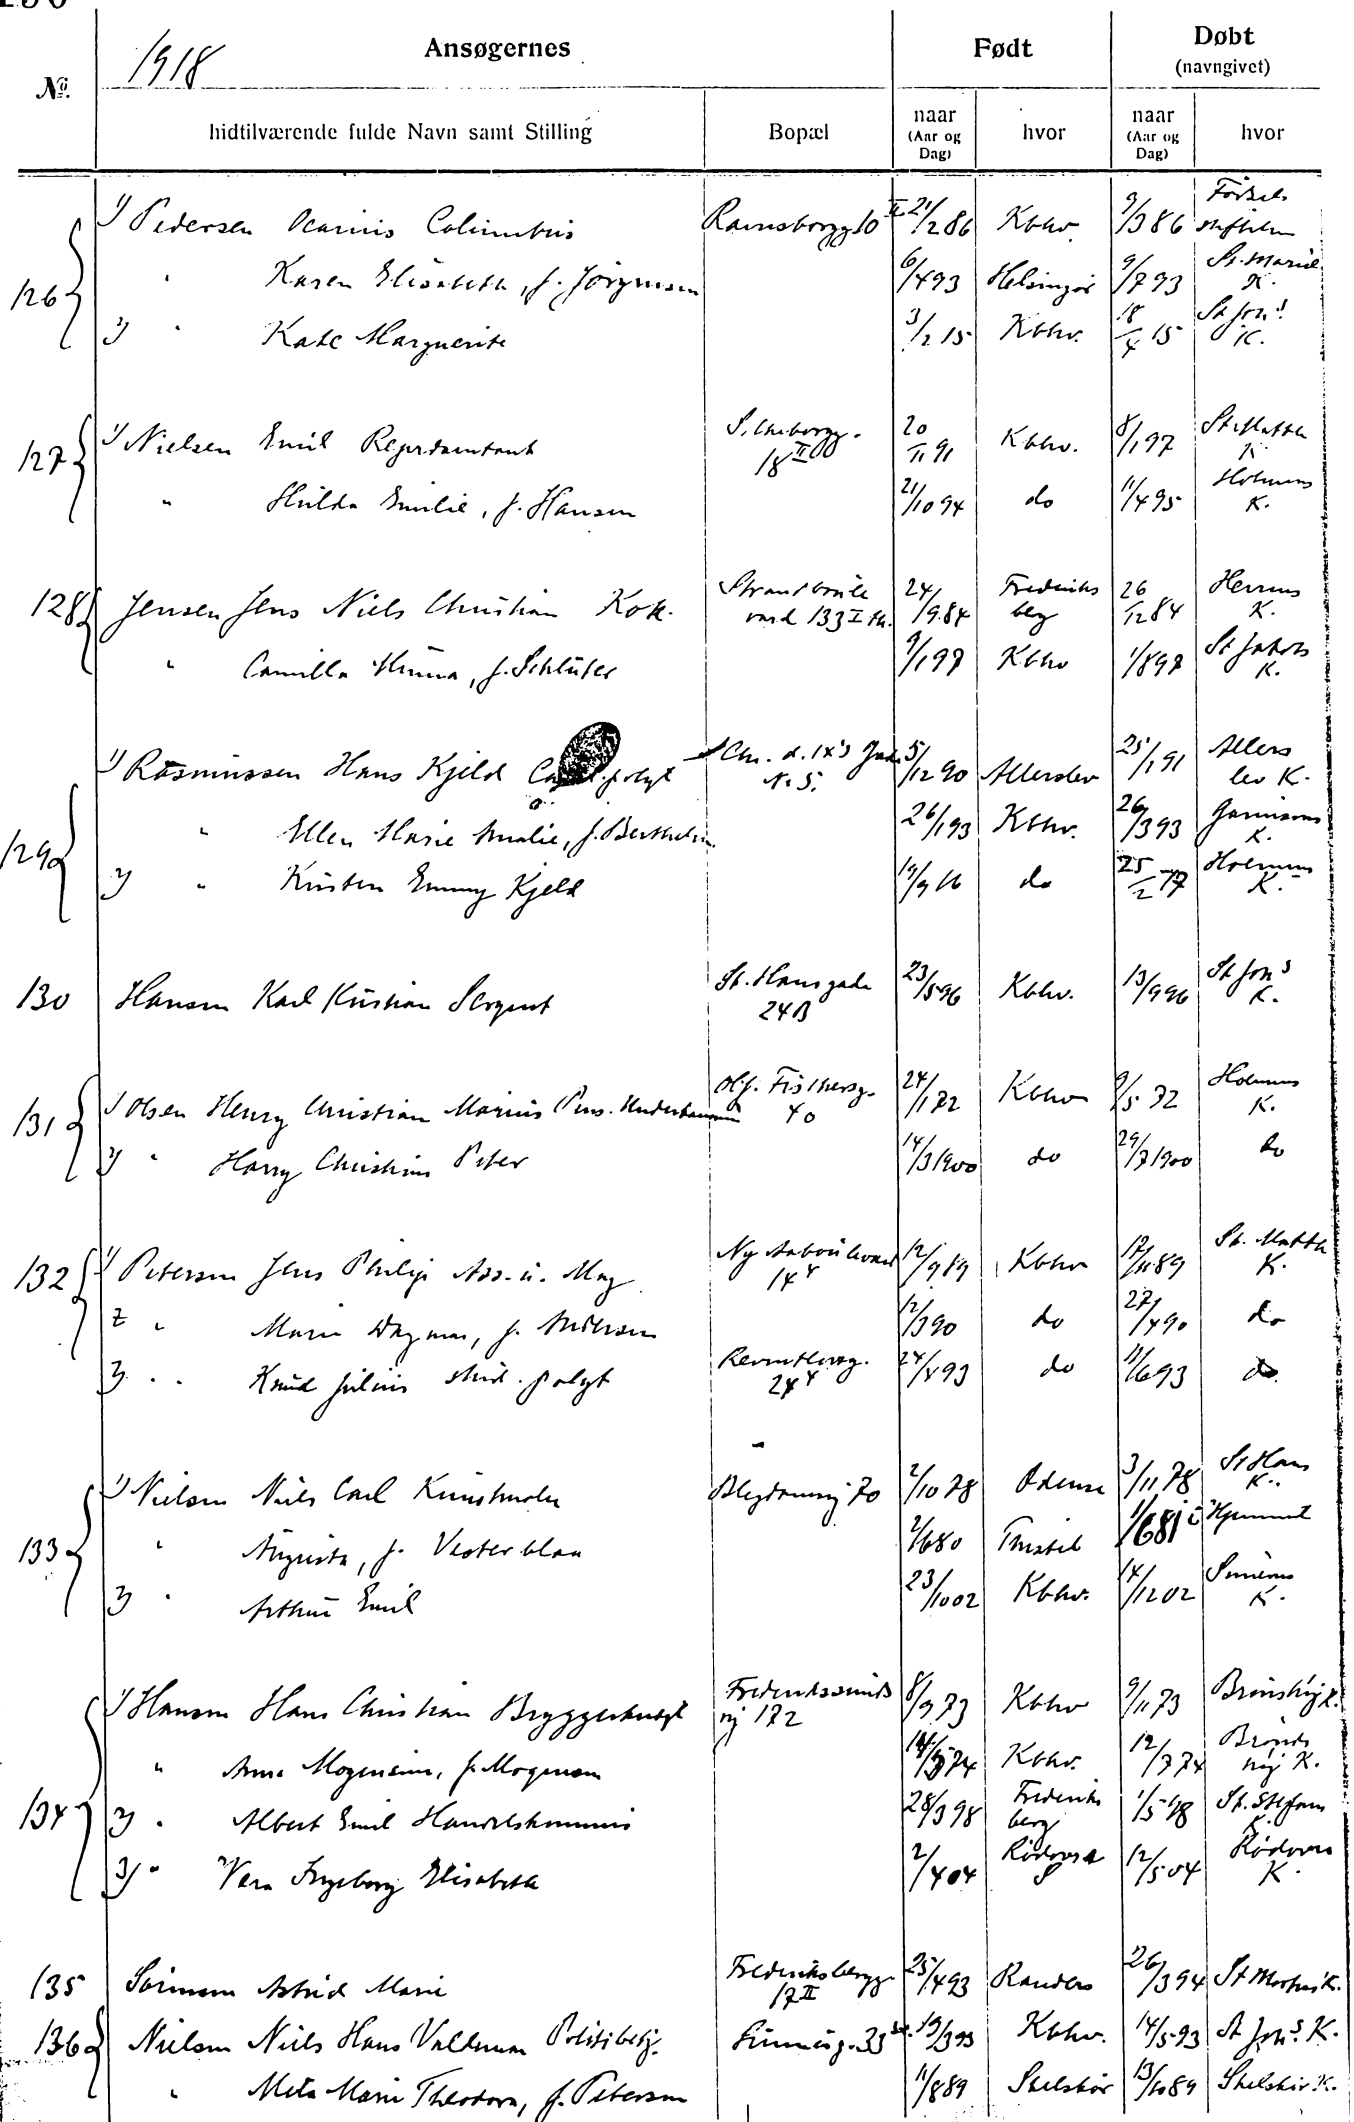 1918
Ansøgernes
Født
Døbt
(navngivet)
№
hidtilværende fulde Navn samt Stilling
Bopæl
naar (Aar og Dag)
hvor
naar (Aar og Dag)
hvor
126
1) Pedersen Ocarius Columbus Ravnsborgg 10 II 21/2 86 Kbhv. 9/3 86 Fødsels stiftelsen
" Karen Elisabeth, f. Jørgensen 6/4 93 Helsingør 9/7 93 St. Mariæ K.
2) " Kate Marguerite 3/2 15 Kbhv. 18/4 15 St Joh.s K.
127
1) Nielsen Emil Repræsentant 18 II 20/11 91 Kbhv. 8/1 97 St Matth K
" Hulda Emilie, f. Hansen 21/10 94 do 11/4 95 Holmens K.
128 Jensen Jens Niels Christian Kok. Strandboule vard 133 I th. 24/9 84 Frederiks berg 26/12 84 Herrens K.
" Camilla Minna, f. Schlüter 9/1 97 Kbhv 1/8 97 St Jakobs K.
129
1) Rasmussen Hans Kjeld Cand. polyt Chr. d. IX's Gade No 5. 5/12 90 Allerslev 25/1 91 Allers lev K.
" Ellen Marie Amalie, f. Berthelsen 26/1 93 Kbhv. 26/3 93 Garnisons K.
2) " Kirsten Emmy Kjeld 19/9 16 do 25/2 17 Holmens K.
130 Hansen Karl Kristian Sergent St. Hansgade 24B 23/5 96 Kbhv. 13/9 96 St Joh s K.
131
1) Olsen Henry Christian Marius Pens. Underkanoner Olf. Fischersg. 40 24/1 72 Kbhvn 9/5 72 Holmens K.
2) " Harry Christian Peter 14/3 1900 do 29/7 1900 do
132
1) Petersen Jens Philip Ass. u. Mag Ny Aaboulevard 14 4 12/9 89 Kbhvn 17/11 89 St. Matth K.
2 " Marie Dagmar, f. Andersen 12/3 90 do 27/4 90 do
3) " " Knud Julius stud. polyt Reventlowsg. 24 4 24/4 93 do 11/6 93 do.
133
1) Nielsen Niels Carl Kunstmaler Blegdamsvej 70 2/10 78 Odense 3/11 78 St Hans K.
" Augusta, f. Vesterblaa 2/6 80 Thisted 1/6 81 i Hjemmet
2) " Arthur Emil 23/10 02 Kbhv. 14/12 02 Simeons K.
134
1) Hansen Hans Christian Bryggerkusk Frederikssunds vj 172 8/9 73 Kbhv 9/11 73 Brønshøj K.
" Anna Mogensine, f. Mogensen 74 Kbhv. 12/7 74 Brøns høj K.
2) " Albert Emil Handelskommis 28/3 98 Frederiks berg 1/5 98 St. Stefans K.
3) " Vera Ingeborg Elisabeth 2/4 04 Rødovre S 12/5 04 Rødovre K
135 Sørensen Astrid Marie Frederiksbergg 17 II 25/4 93 Randers 26/3 94 St Mortens K.
136 Nielsen Niels Hans Valdemar Politibetj. 33 St. 19/3 93 Kbhv. 14/5 93 St Joh.s K.
" Meta Marie Theodora, f. Petersen 11/8 89 Skelskør 13/10 89 Skelskør K.